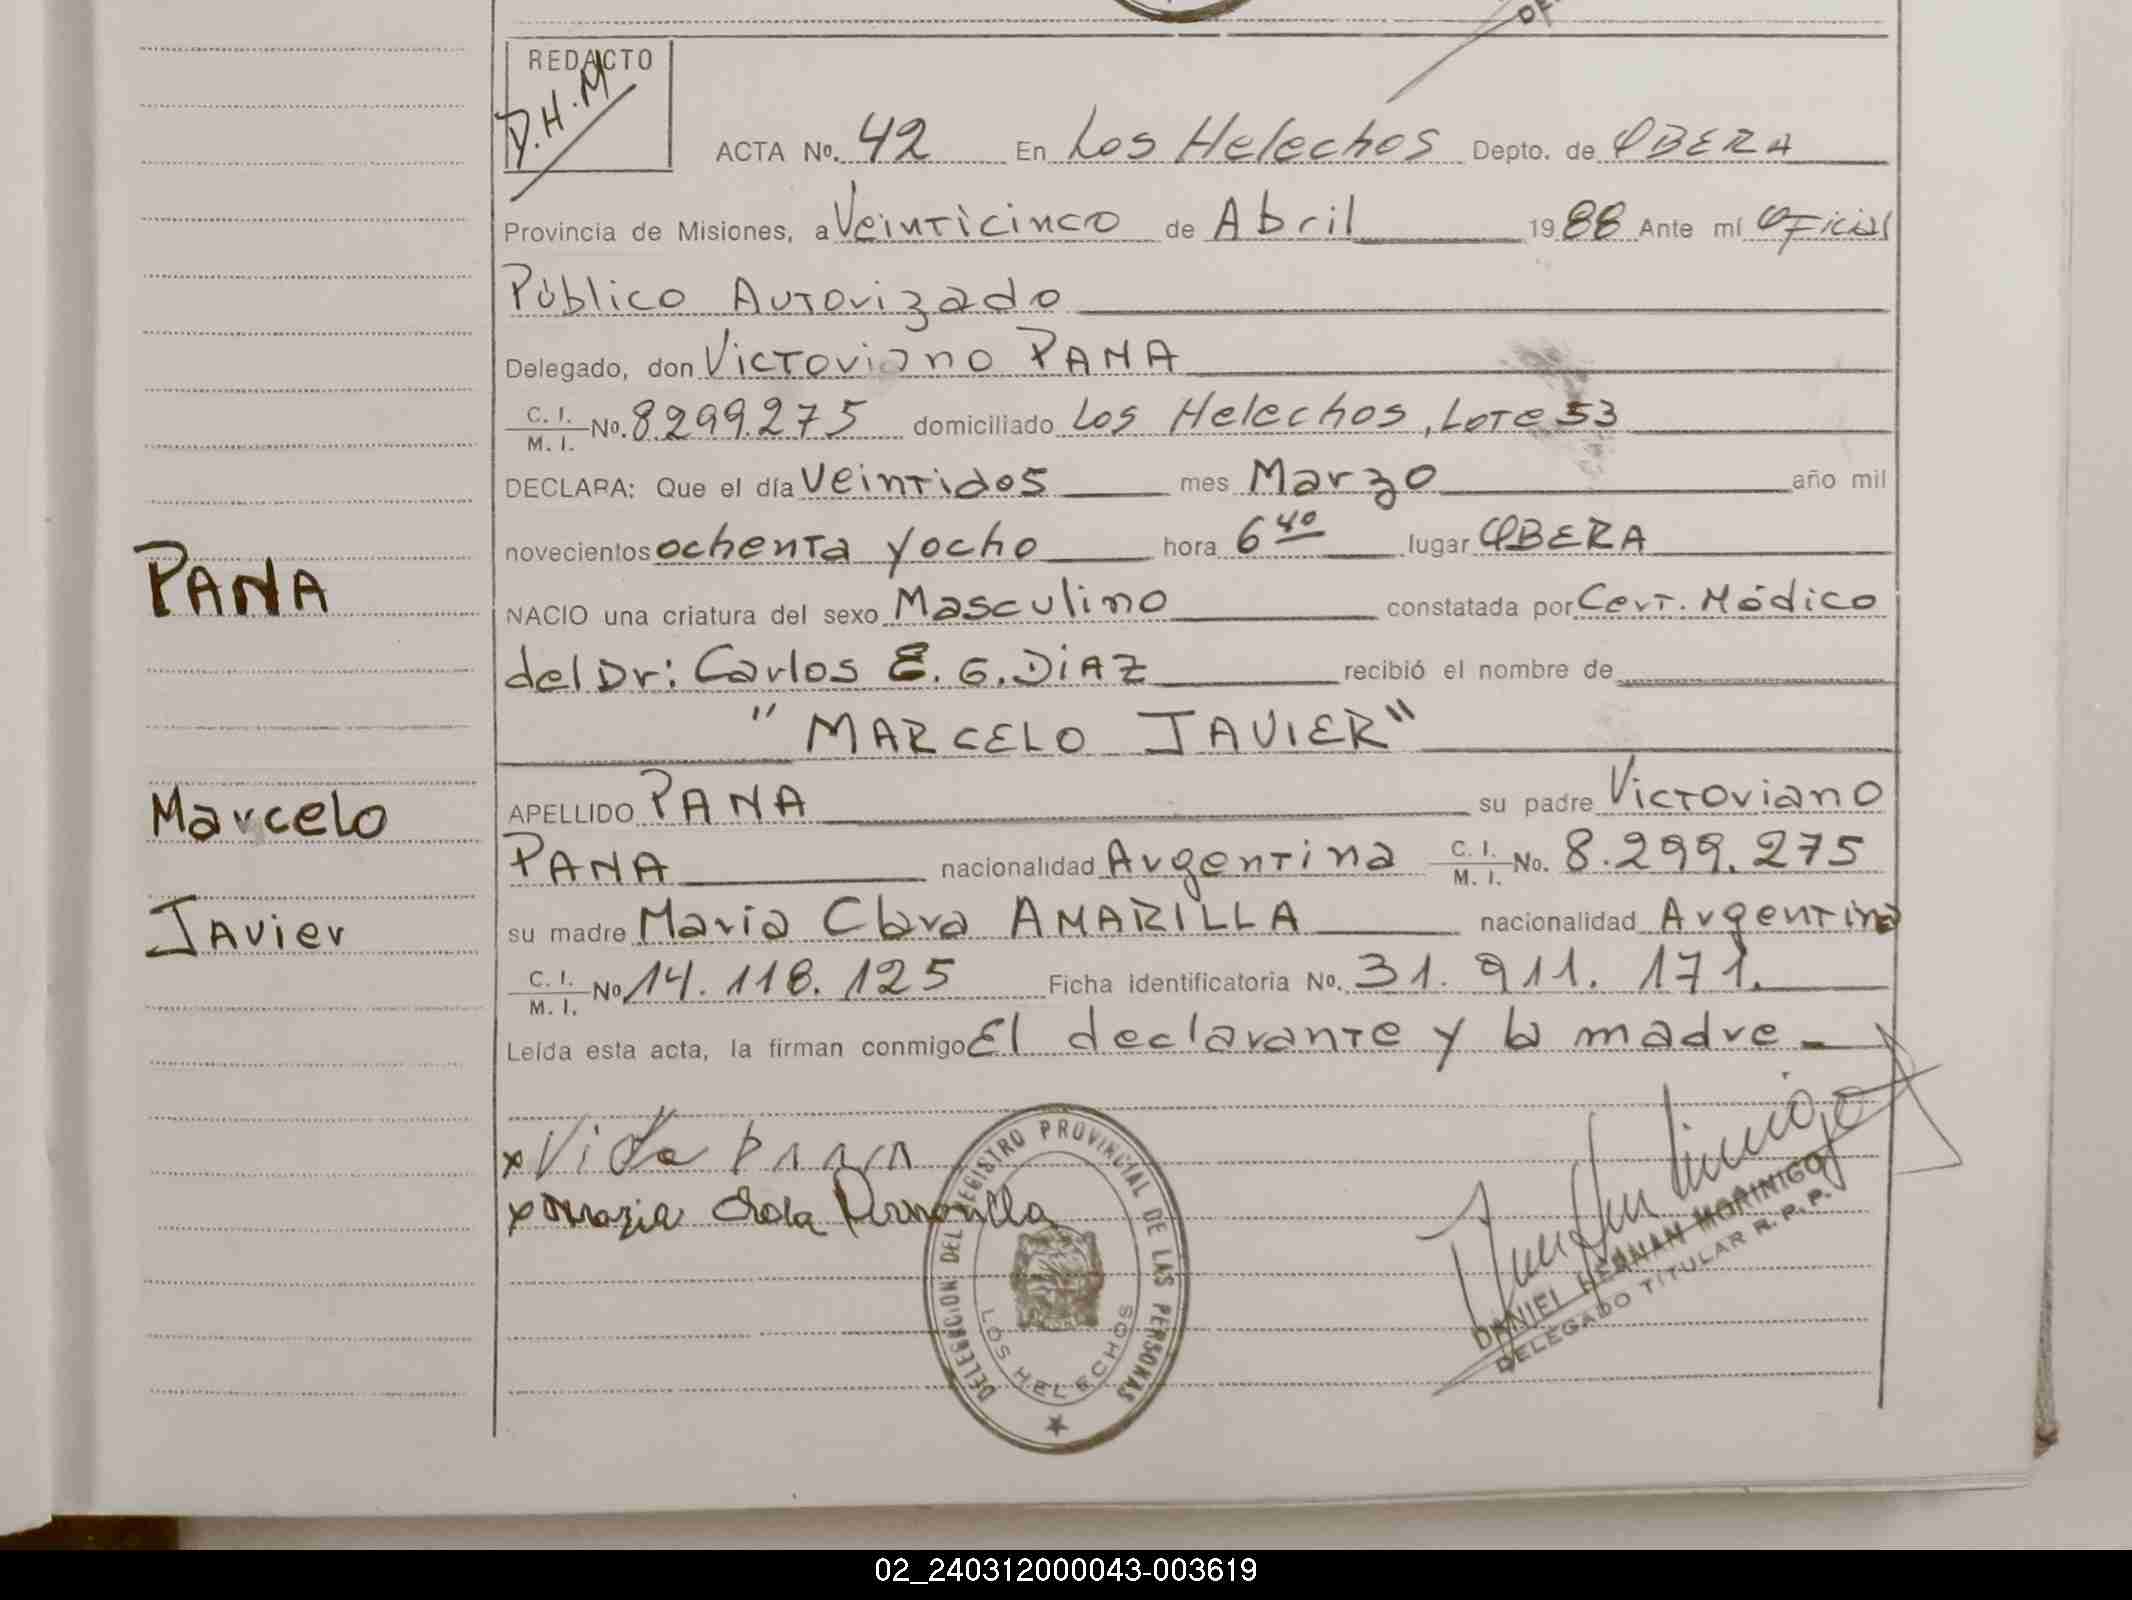 REDACTO
D.H.M
ACTA No. 42 En Los Helechos Depto. de OBERA
Provincia de Misiones, a Veinticinco de Abril 1988 Ante mí Oficial
Público Autorizado
Delegado, don Victoriano PANA
C. I. / M. I. No. 8.299.275 domiciliado Los Helechos, Lote 53
DECLARA: Que el día Veintidos mes Marzo año mil
novecientos ochenta y ocho hora 6 40 lugar OBERA
PANA
NACIO una criatura del sexo Masculino constatada por Cert. Médico
del Dr: Carlos E. G. DiAZ recibió el nombre de
"MARCELO JAVIER"
Marcelo
APELLIDO PANA su padre Victoriano
PANA nacionalidad Argentina C. I. / M. I. No. 8.299.275
Javier
su madre Maria Clara AMARILLA nacionalidad Argentina
C. I. / M. I. No 14.118.125 Ficha identificatoria No. 31.911.171.
Leída esta acta, la firman conmigo El declarante y la madre
DELEGACION DEL REGISTRO PROVINCIAL DE LAS PERSONAS
LOS HELECHOS
DANIEL HERNAN MORINIGO
DELEGADO TITULAR R. P. P.
02_240312000043-003619